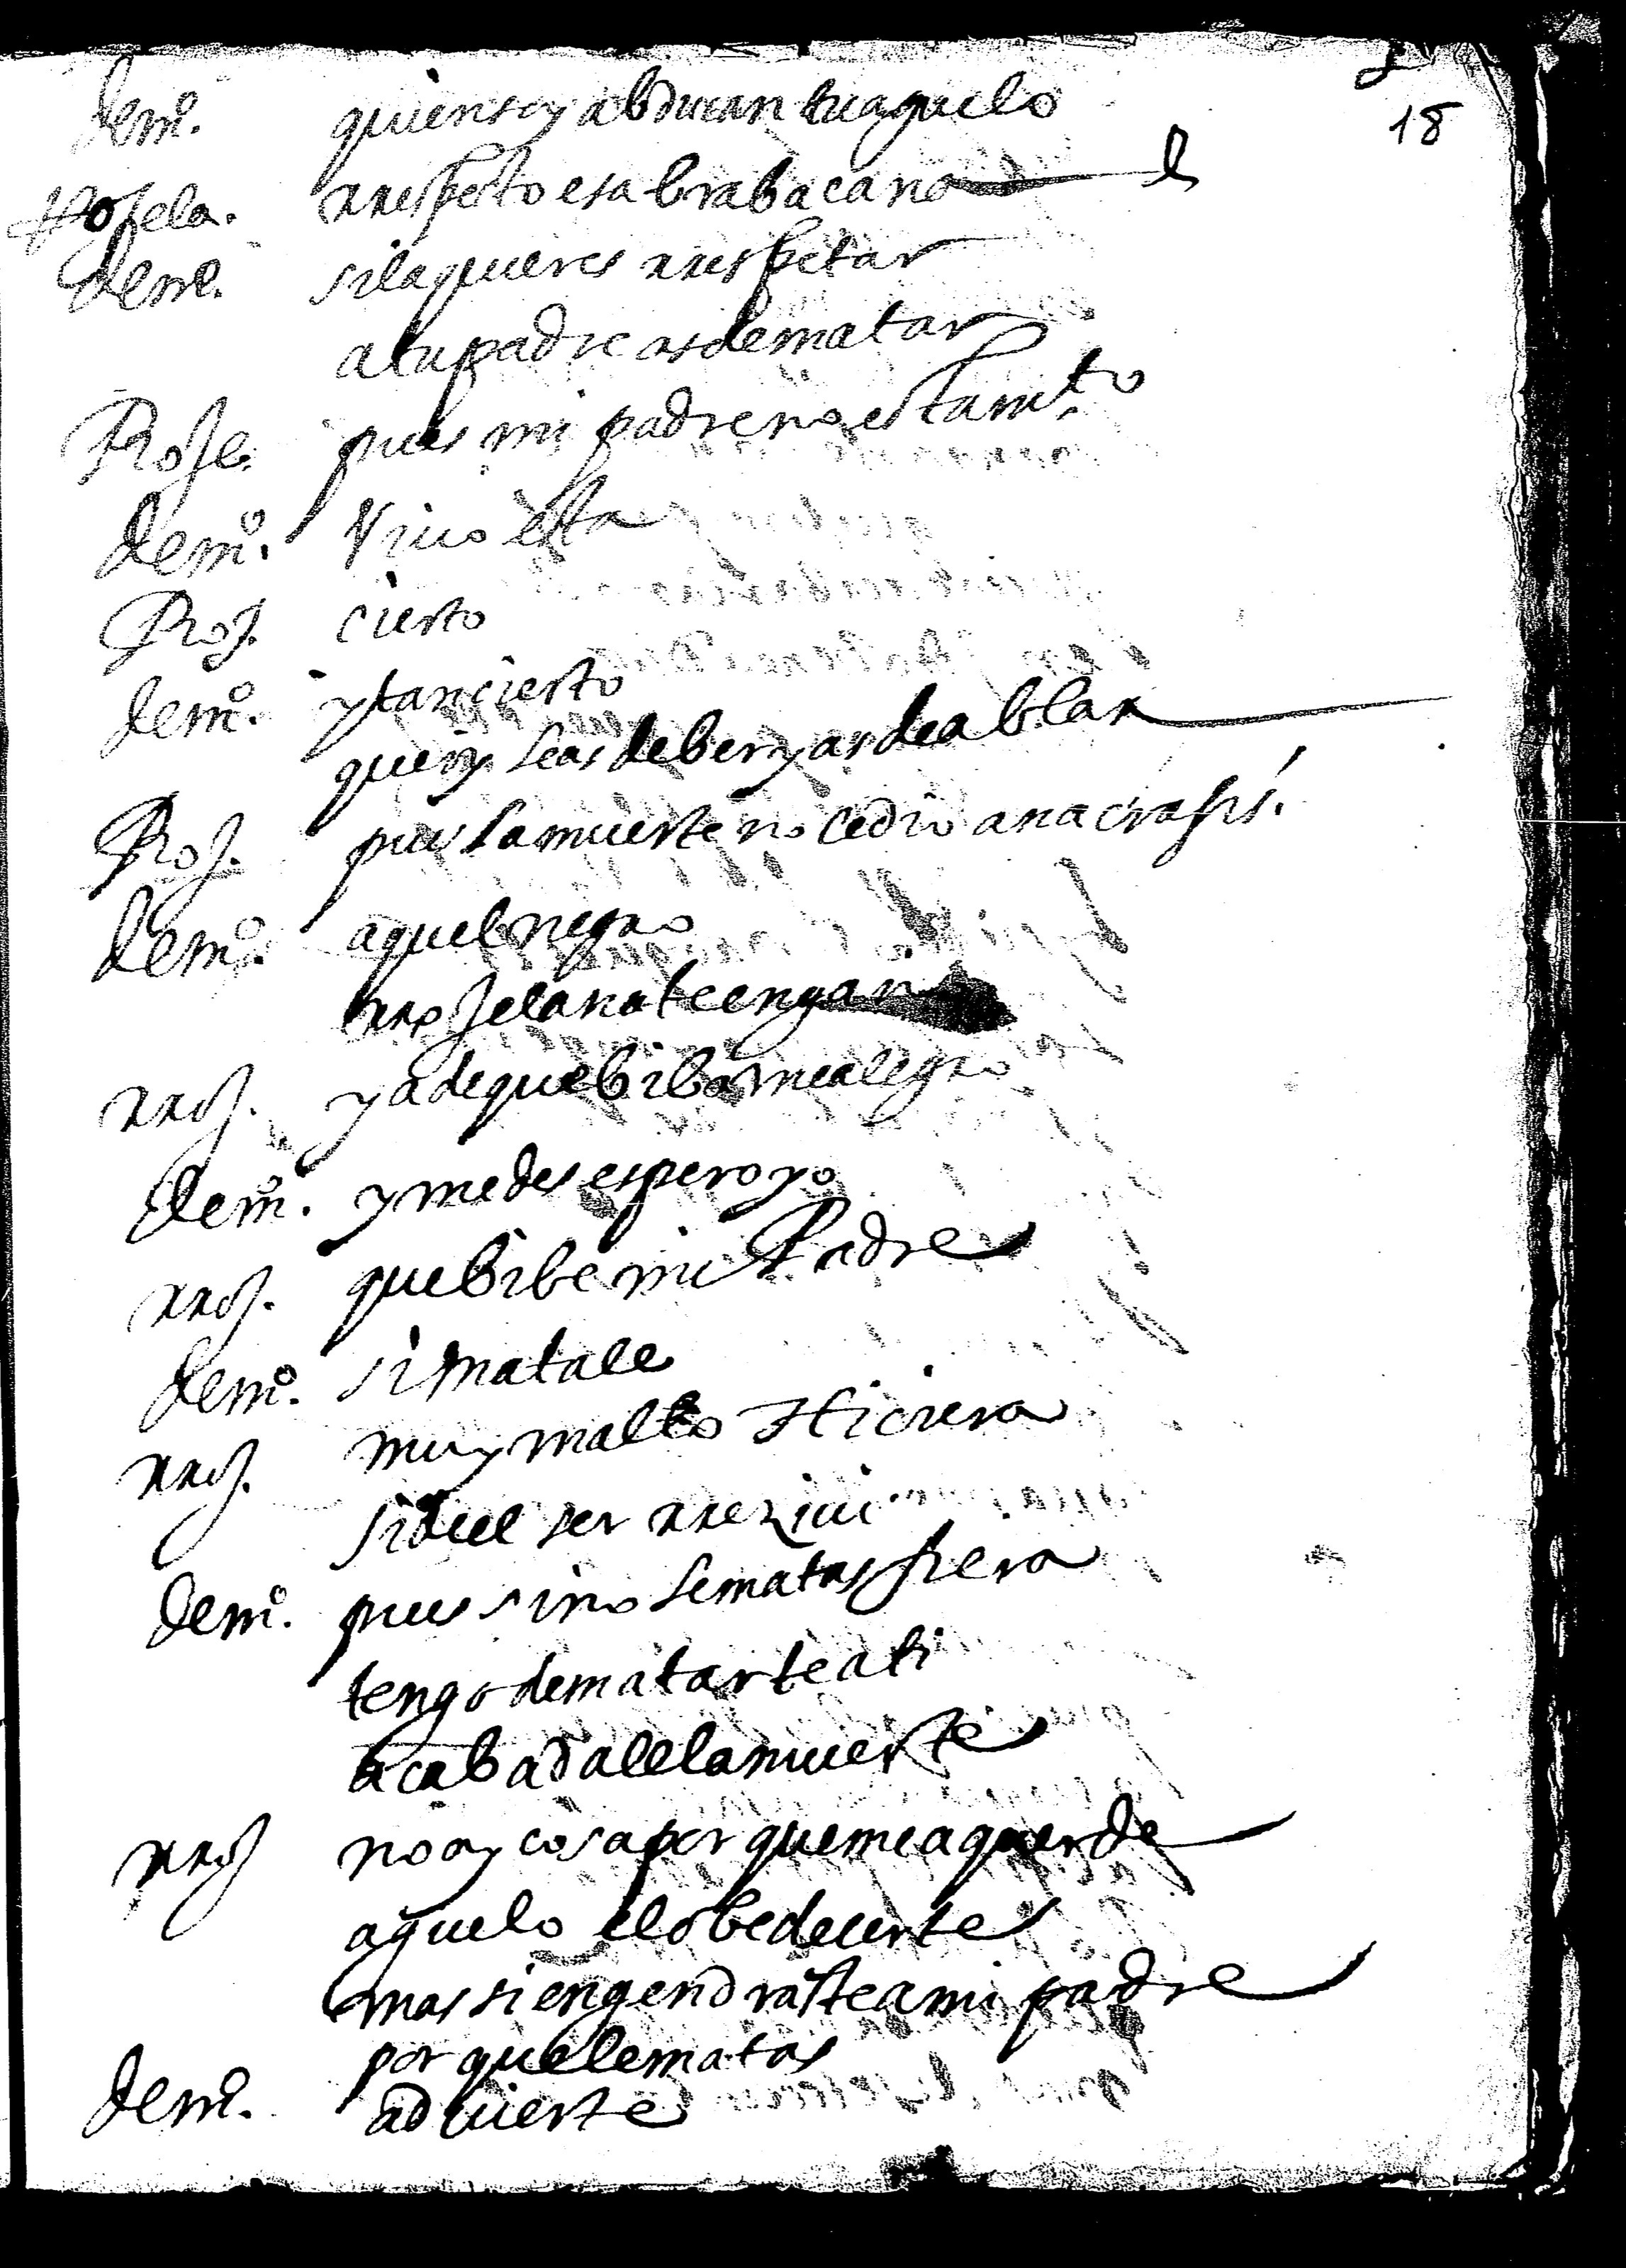 18
demo. quien soy abducan tu aguelo
Rosela. rrespeto esa braba cana
demo. si la quieres rrespetar
a tu padre as de matar
Rose. pues mi padre no esta mto
demo. Vivo esta
Ros. cierto
demo. y tan cierto
que oy le as de ber y as de ablar
Ros. pues la muerte no le dio anacrasis.
demo. aquel negro
rrosela no te engañ
rros. ya de que biba me alegro
demo. y me desespero yo
rros. que bibe mi Padre
demo. si matale
rros. muy mal lo Hiciera
si del ser rrezivi
demo. pues si no le matas fiera
tengo de matarte a ti
acaba dale la muerte
rros no ay cosa por que me aquerde
aguelo el obedecerte
mas si engendraste a mi padre
por que le matas
demo. advierte